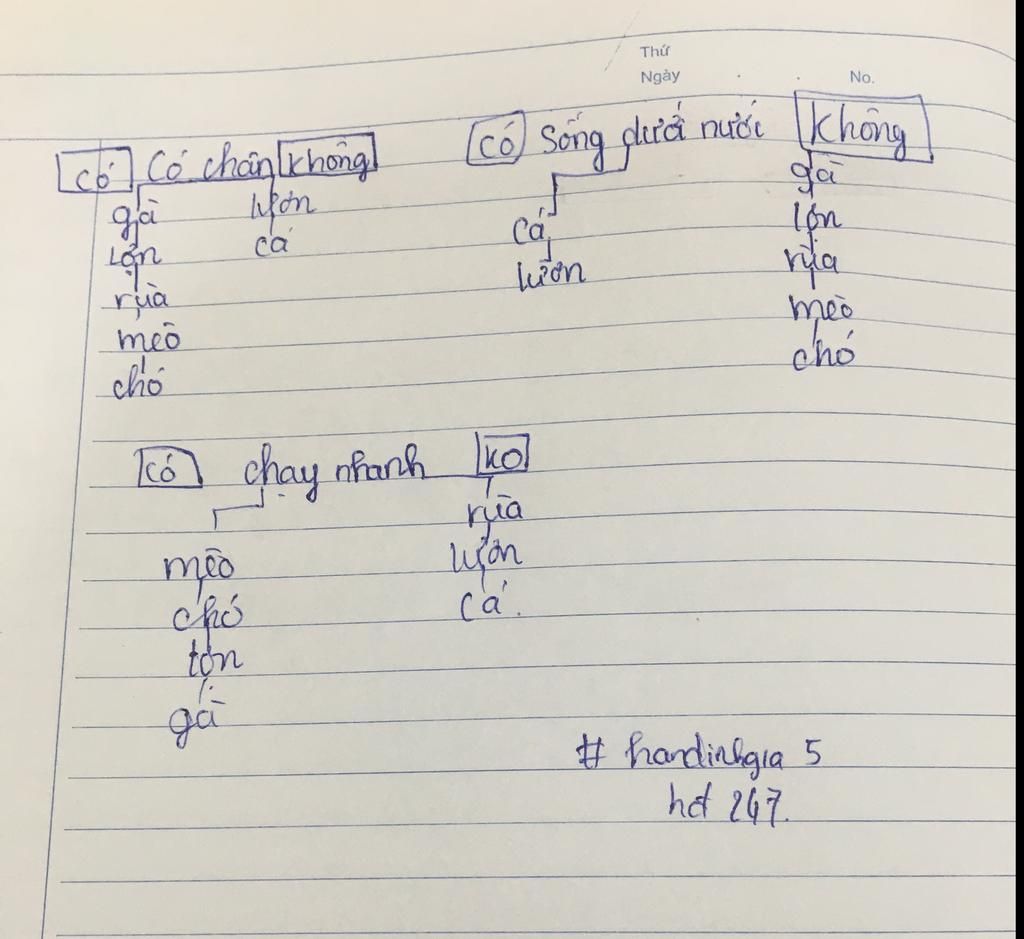 Thứ
Ngày
No.
có Có chân không
gà
lợn
rùa
mèo
chó
lươn
cá
có Sống dưới nước không
cá
lươn
gà
lợn
rùa
mèo
chó
có chạy nhanh ko
mèo
chó
lợn
gà
rùa
lươn
cá.
# handinhgia 5
hđ 247.